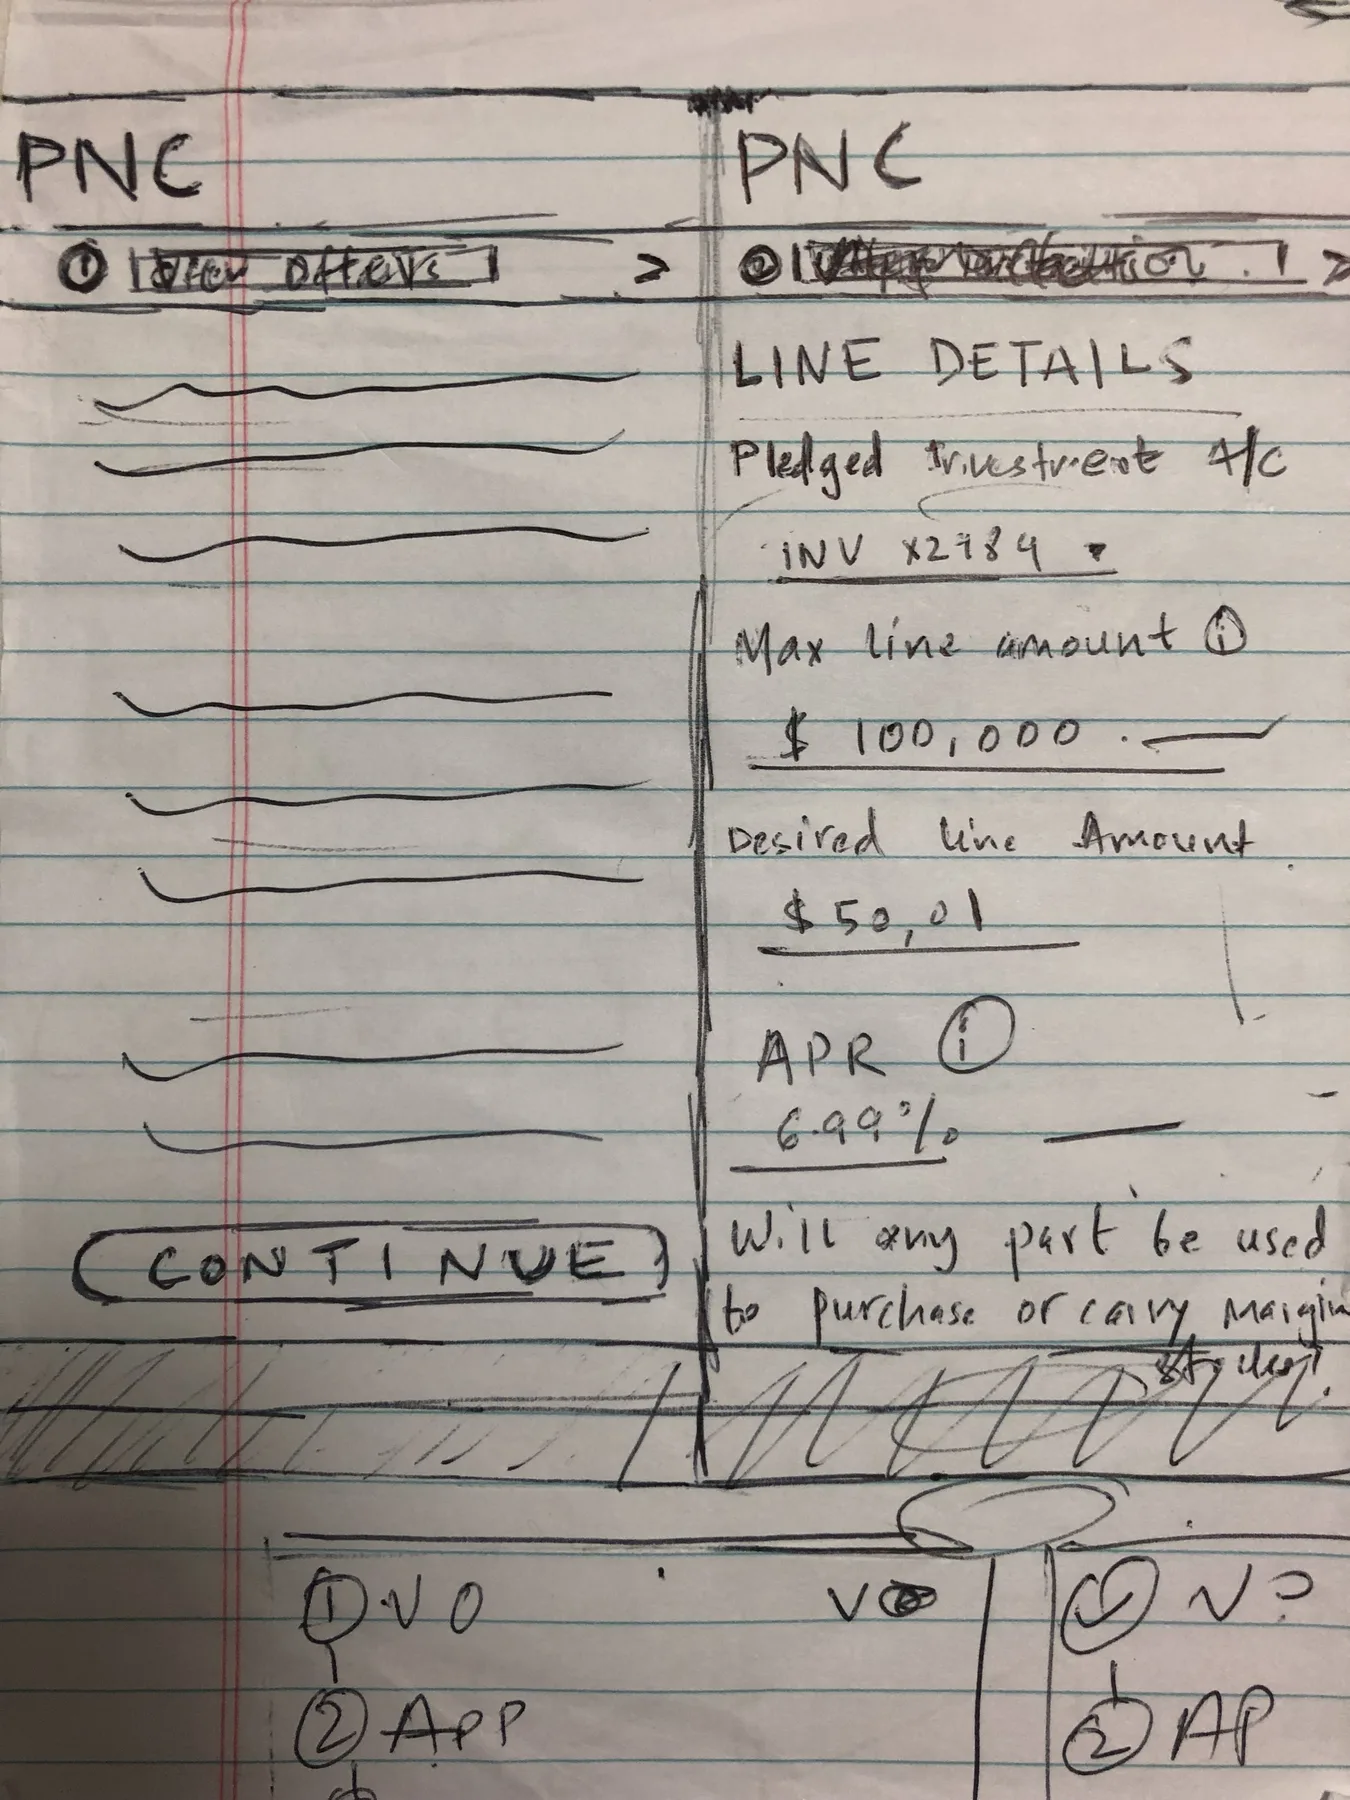 PNC
① View offers >
CONTINUE
PNC
② >
LINE DETAILS
Pledged Investment A/C
INV x2984
Max line amount ⓘ
$ 100,000
Desired line Amount
$50,01
APR ⓘ
6.99%
Will any part be used
to purchase or carry margin
① VO
VO
② APP
② AP